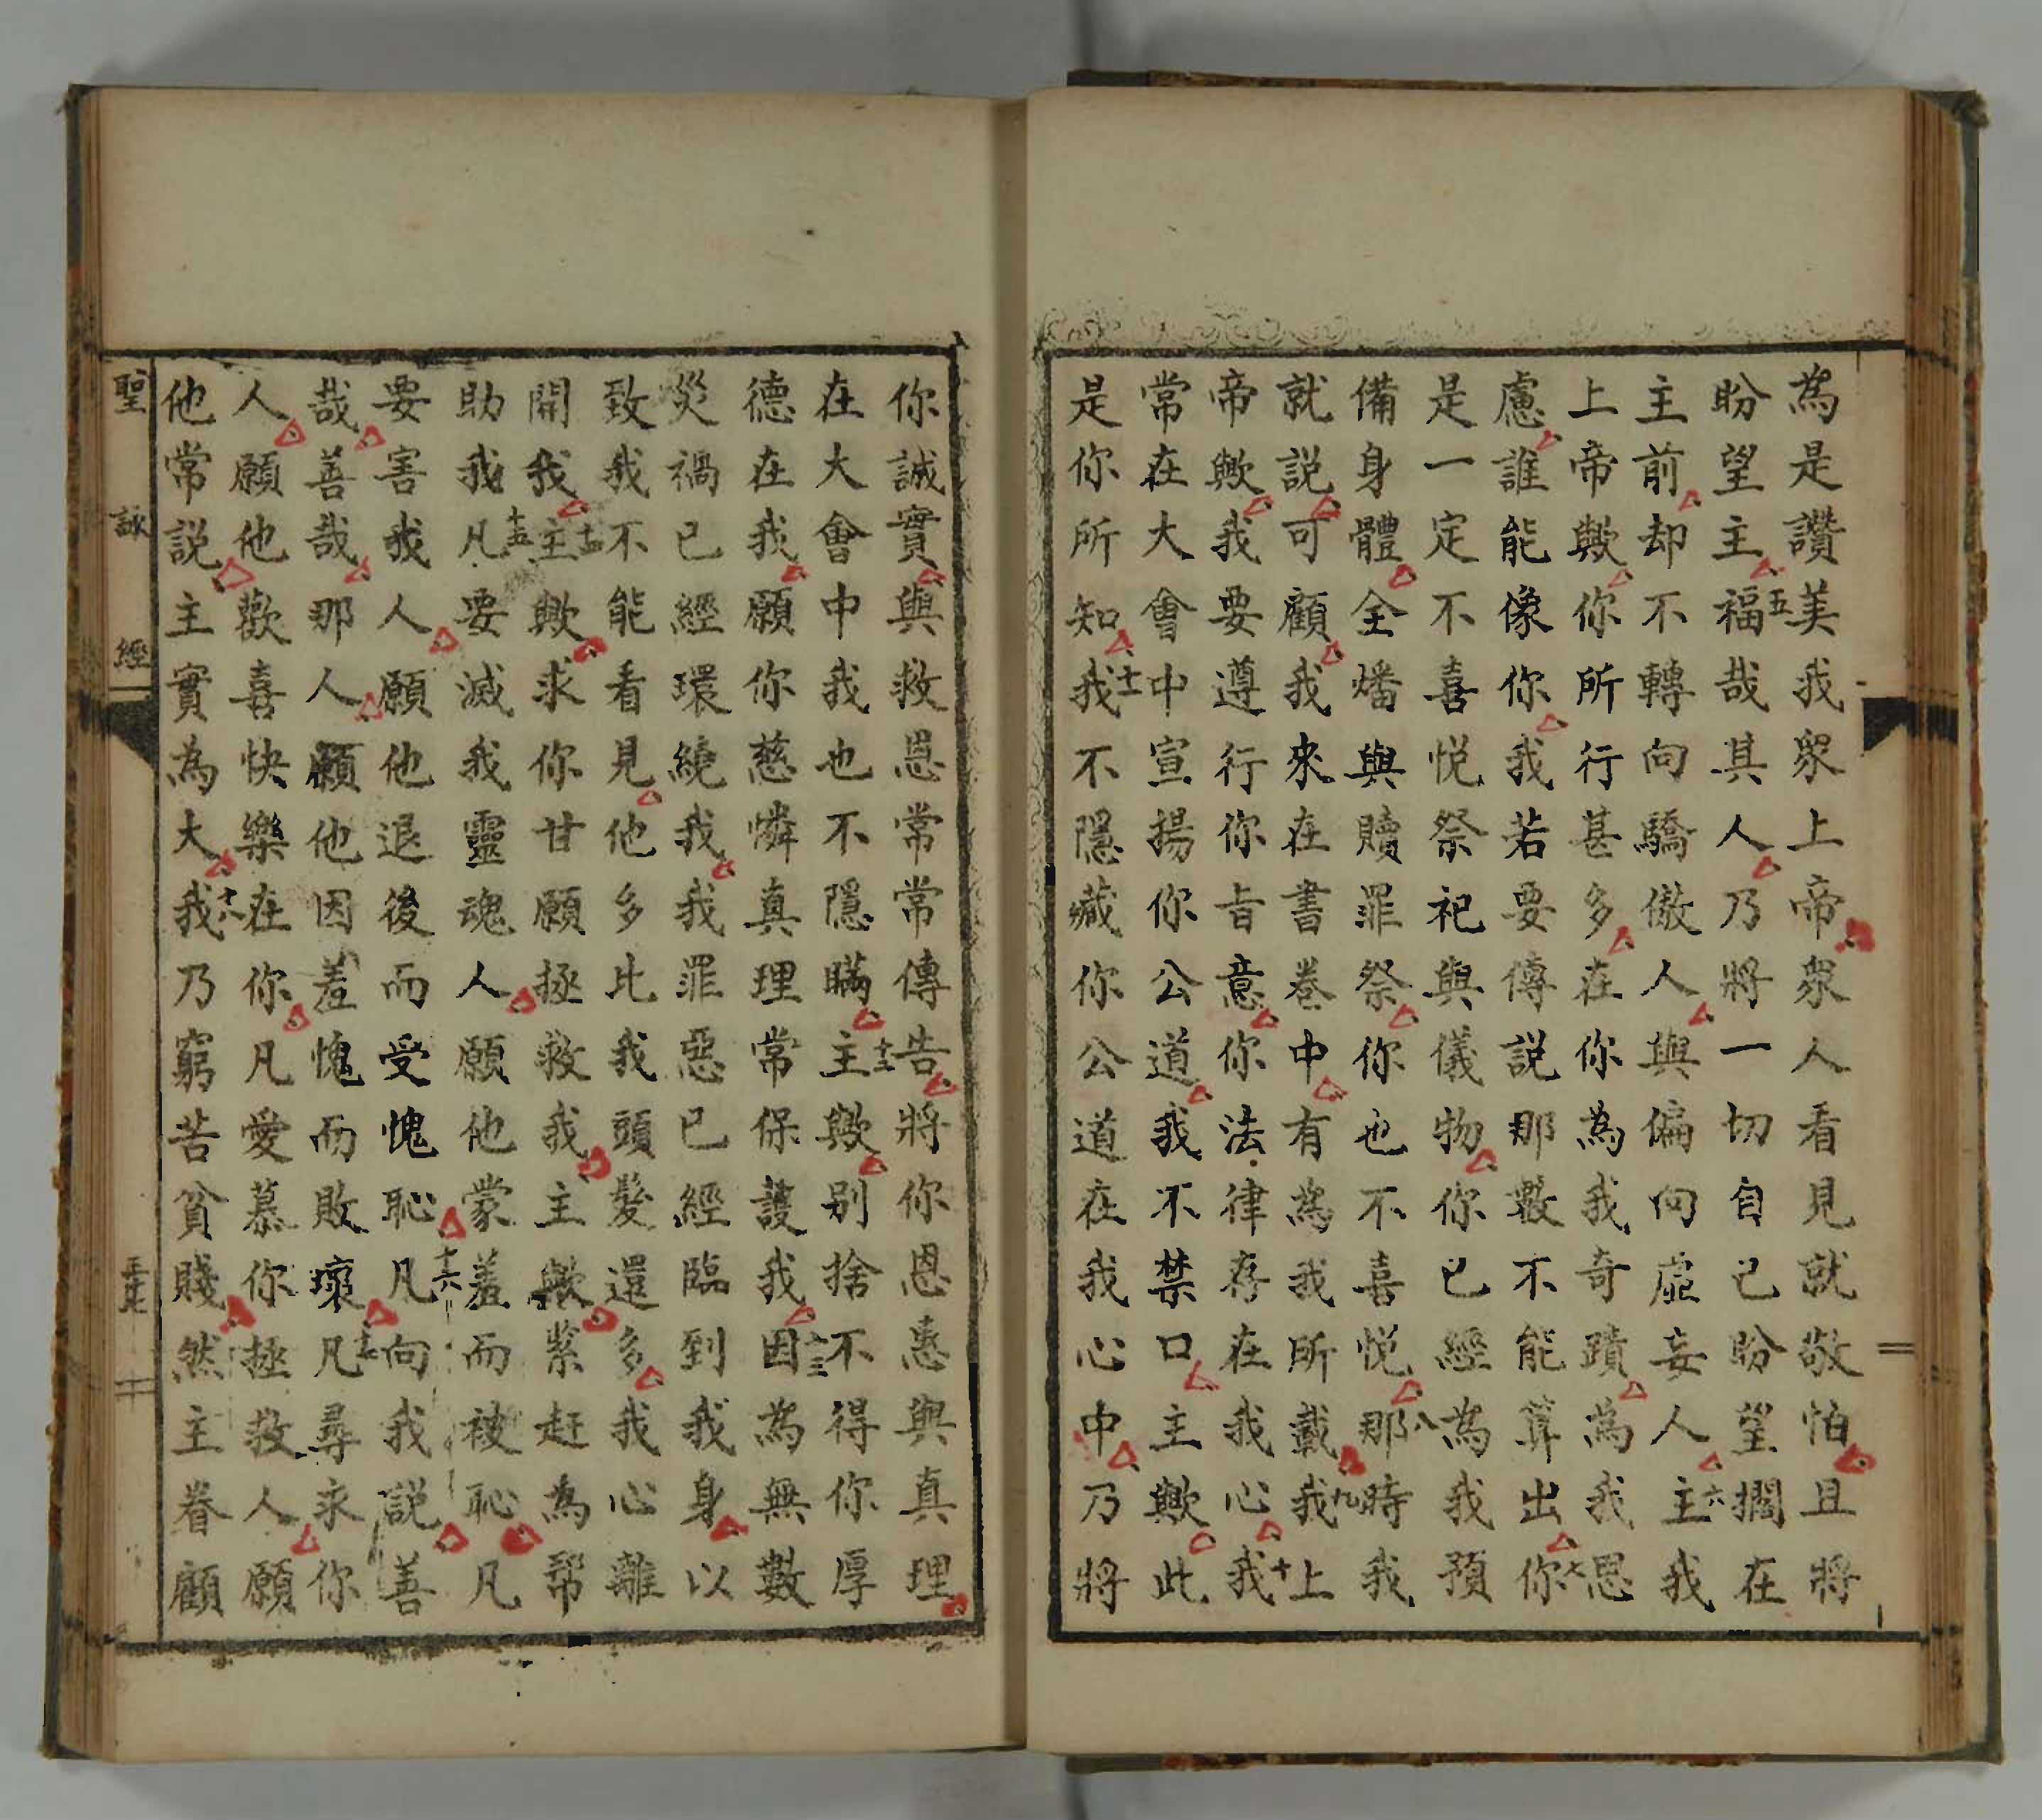 為是讚美我眾上帝眾人看見就敬怕且將
盼望主五福哉其人乃將一切自己盼望擱在
主前却不轉向驕傲人與偏向虛妄人主六我
上帝歟你所行甚多在你為我奇蹟為我思
慮誰能像你我若要傳說那數不能算出你七
是一定不喜悅祭祀與儀物你已經為我預
備身體全燔與贖罪祭你也不喜悅那八時我
就說可顧我來在書卷中有為我所載我九上
帝歟我要遵行你旨意你法律存在我心我十
常在大會中宣揚你公道我不禁口主歟此
是你所知我十一不隱藏你公道在我心中乃將
你誠實與救恩常常傳告將你恩惠與真理
在大會中我也不隱瞞主十二歟別捨不得你厚
德在我願你慈憐真理常保護我因十三為無數
災禍已經環繞我我罪惡已經臨到我身以
致我不能看見他多比我頭髮還多我心離
開我主十四歟求你甘願拯救我主歟緊赶為幇
助我凡十五要滅我靈魂人願他蒙羞而被恥凡
要害我人願他退後而受愧恥凡十六向我說善
哉善哉那人願他因羞愧而敗壞凡十七尋求你
人願他歡喜快樂在你凡愛慕你拯救人願
他常說主實為大我十八乃窮苦貧賤然主眷顧
聖詠經